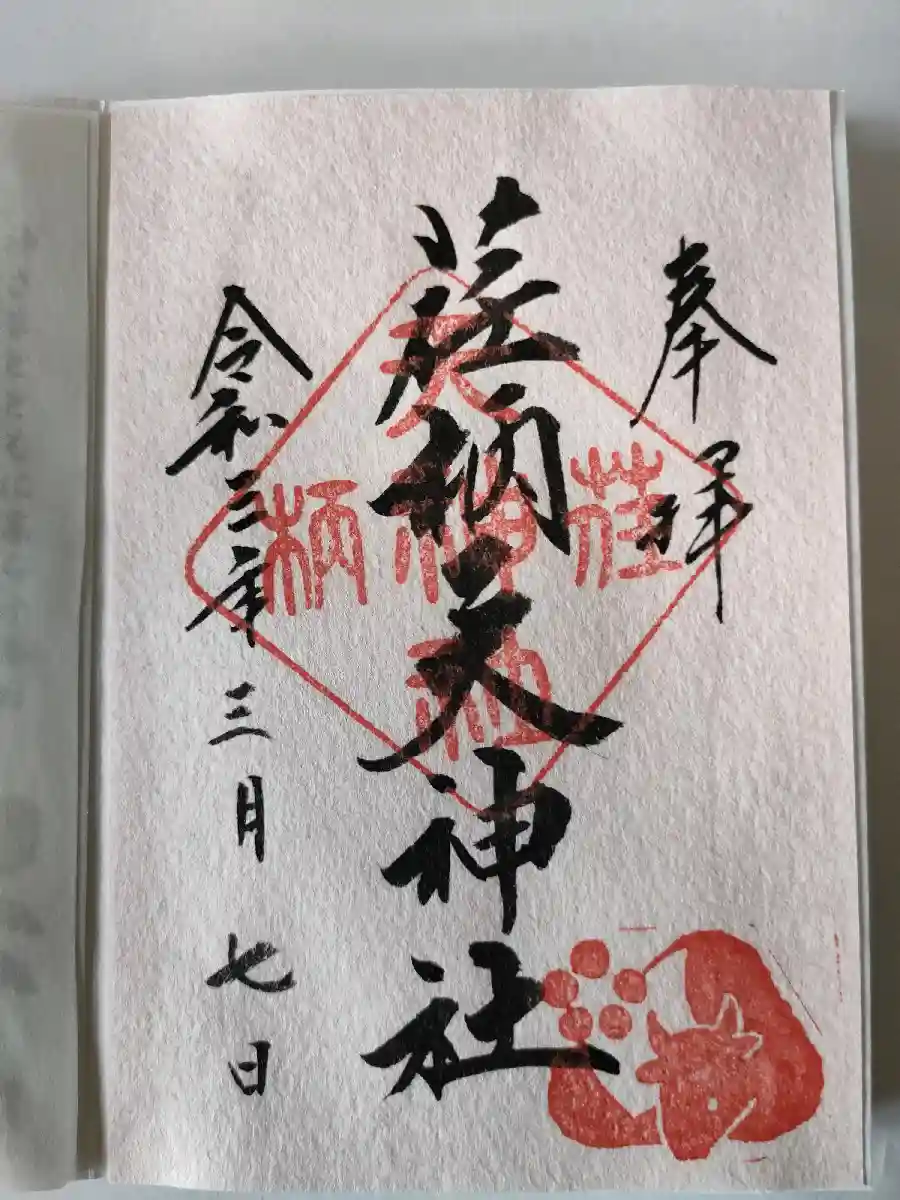 奉拝
荏柄天神社
令和三年三月七日
天
荏神柄
社